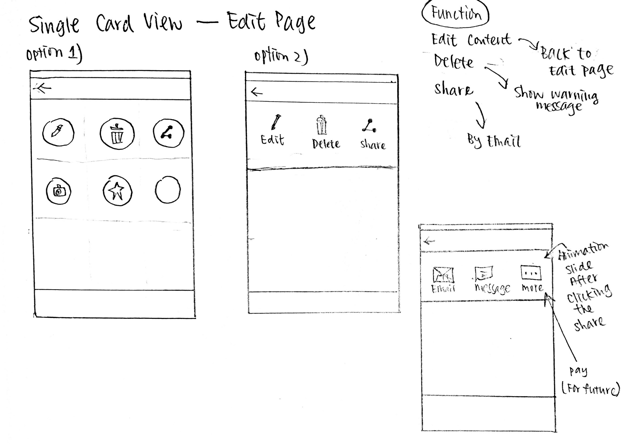 Single Card View — Edit Page
option 1)
option 2)
Edit
Delete
Share
Function
Edit Content
Back to
Edit page
Delete
Show warning
message
Share
By Email
Email
message
more
Animation
slide
After
clicking
the
share
pay
(For future)